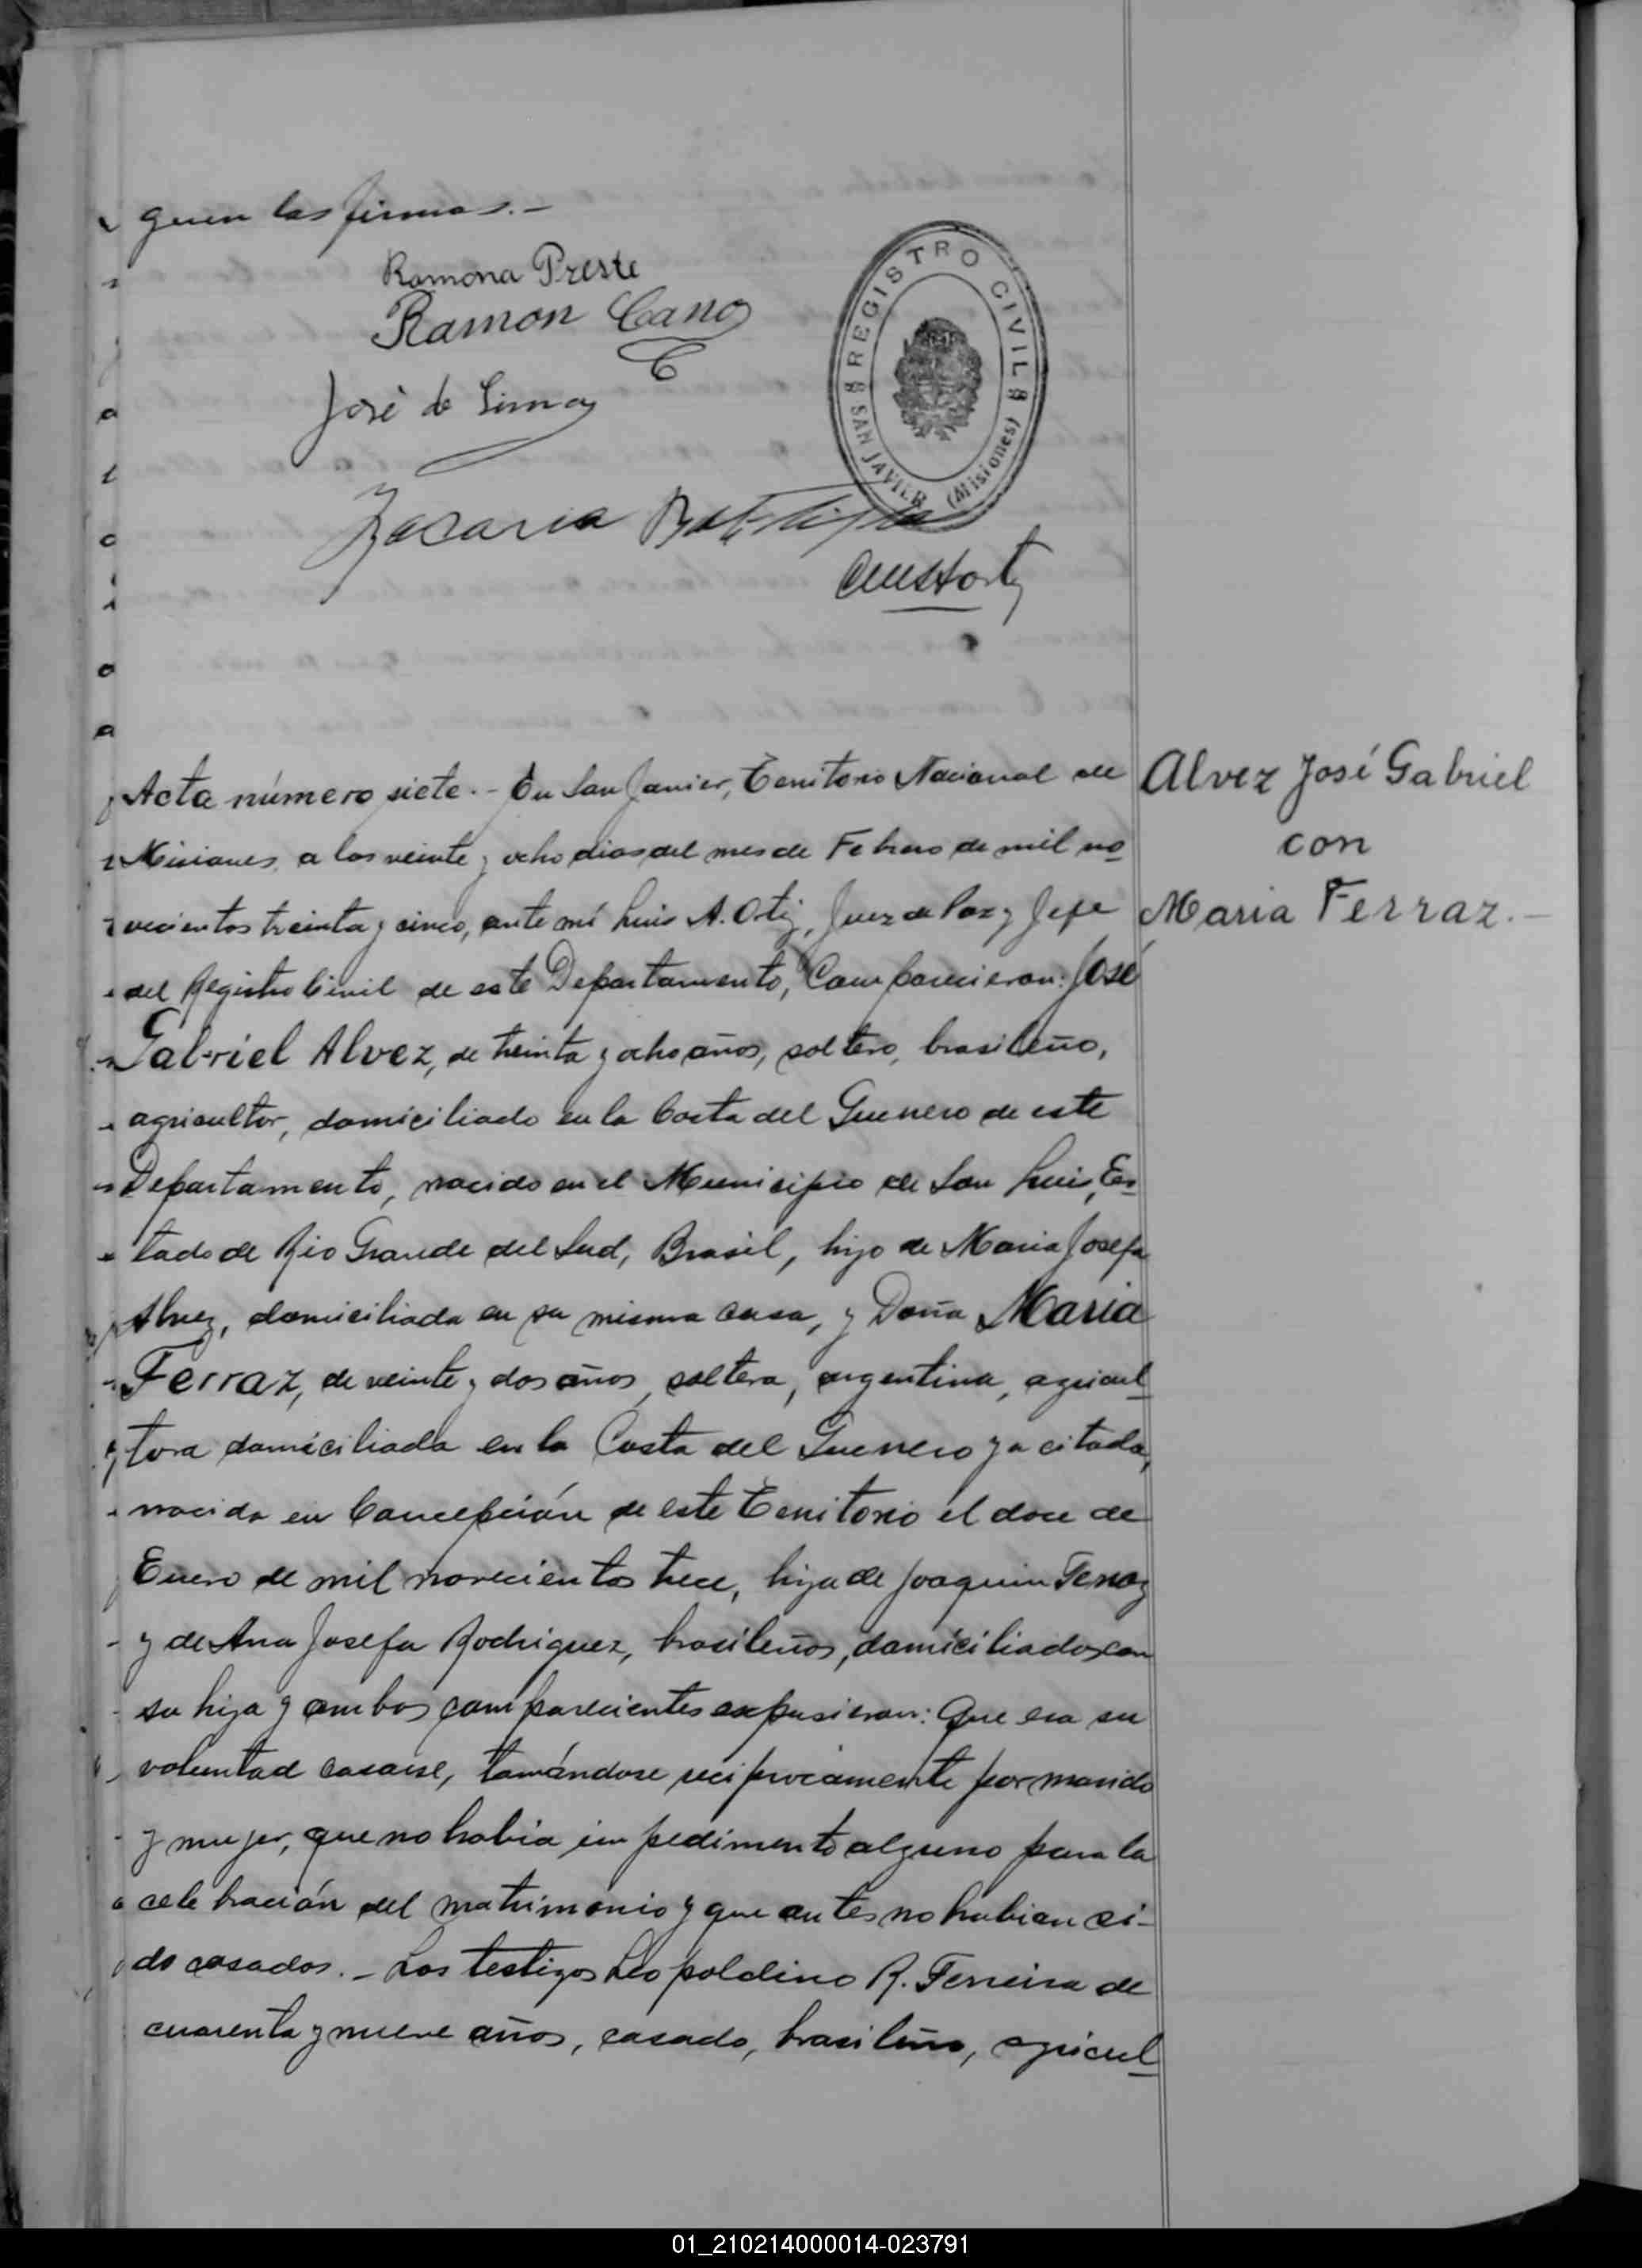 guen las firmas.-
Ramona Preste
Ramon Cano
José de Lima
Zacaria Battista
REGISTRO CIVIL
SAN JAVIER (Misiones)
Acta número siete.- En San Javier, Territorio Nacional de
Alvez José Gabriel
con
Maria Ferraz.-
Misiones, a los veinte y ocho dias del mes de Febrero de mil no
vecientos treinta y cinco, ante mí Luis A. Ortiz, Juez de Paz y Jefe
del Registro Civil de este Departamento, Comparecieron: José
Gabriel Alvez, de treinta y ocho años, soltero, brasileño,
agricultor, domiciliado en la Costa del Guerrero de este
Departamento, nacido en el Municipio de San Luis, Es
tado de Rio Grande del Sud, Brasil, hijo de Maria Josefa
Alvez, domiciliada en su misma casa, y Doña Maria
Ferraz, de veinte y dos años, soltera, argentina, agricul
tora domiciliada en la Costa del Guerrero ya citada,
nacida en Concepción de este Territorio el doce de
Enero de mil novecientos trece, hija de Joaquin Ferraz
y de Ana Josefa Rodriguez, brasileños, domiciliados con
su hija y ambos comparecientes expusieron: Que era su
voluntad casarse, tomándose reciprocamente por marido
y mujer, que no habia impedimento alguno para la
celebración del matrimonio y que antes no habian si-
do casados.- Los testigos Leopoldino R. Ferreira de
cuarenta y nueve años, casado, brasileño, agricul
01_210214000014-023791